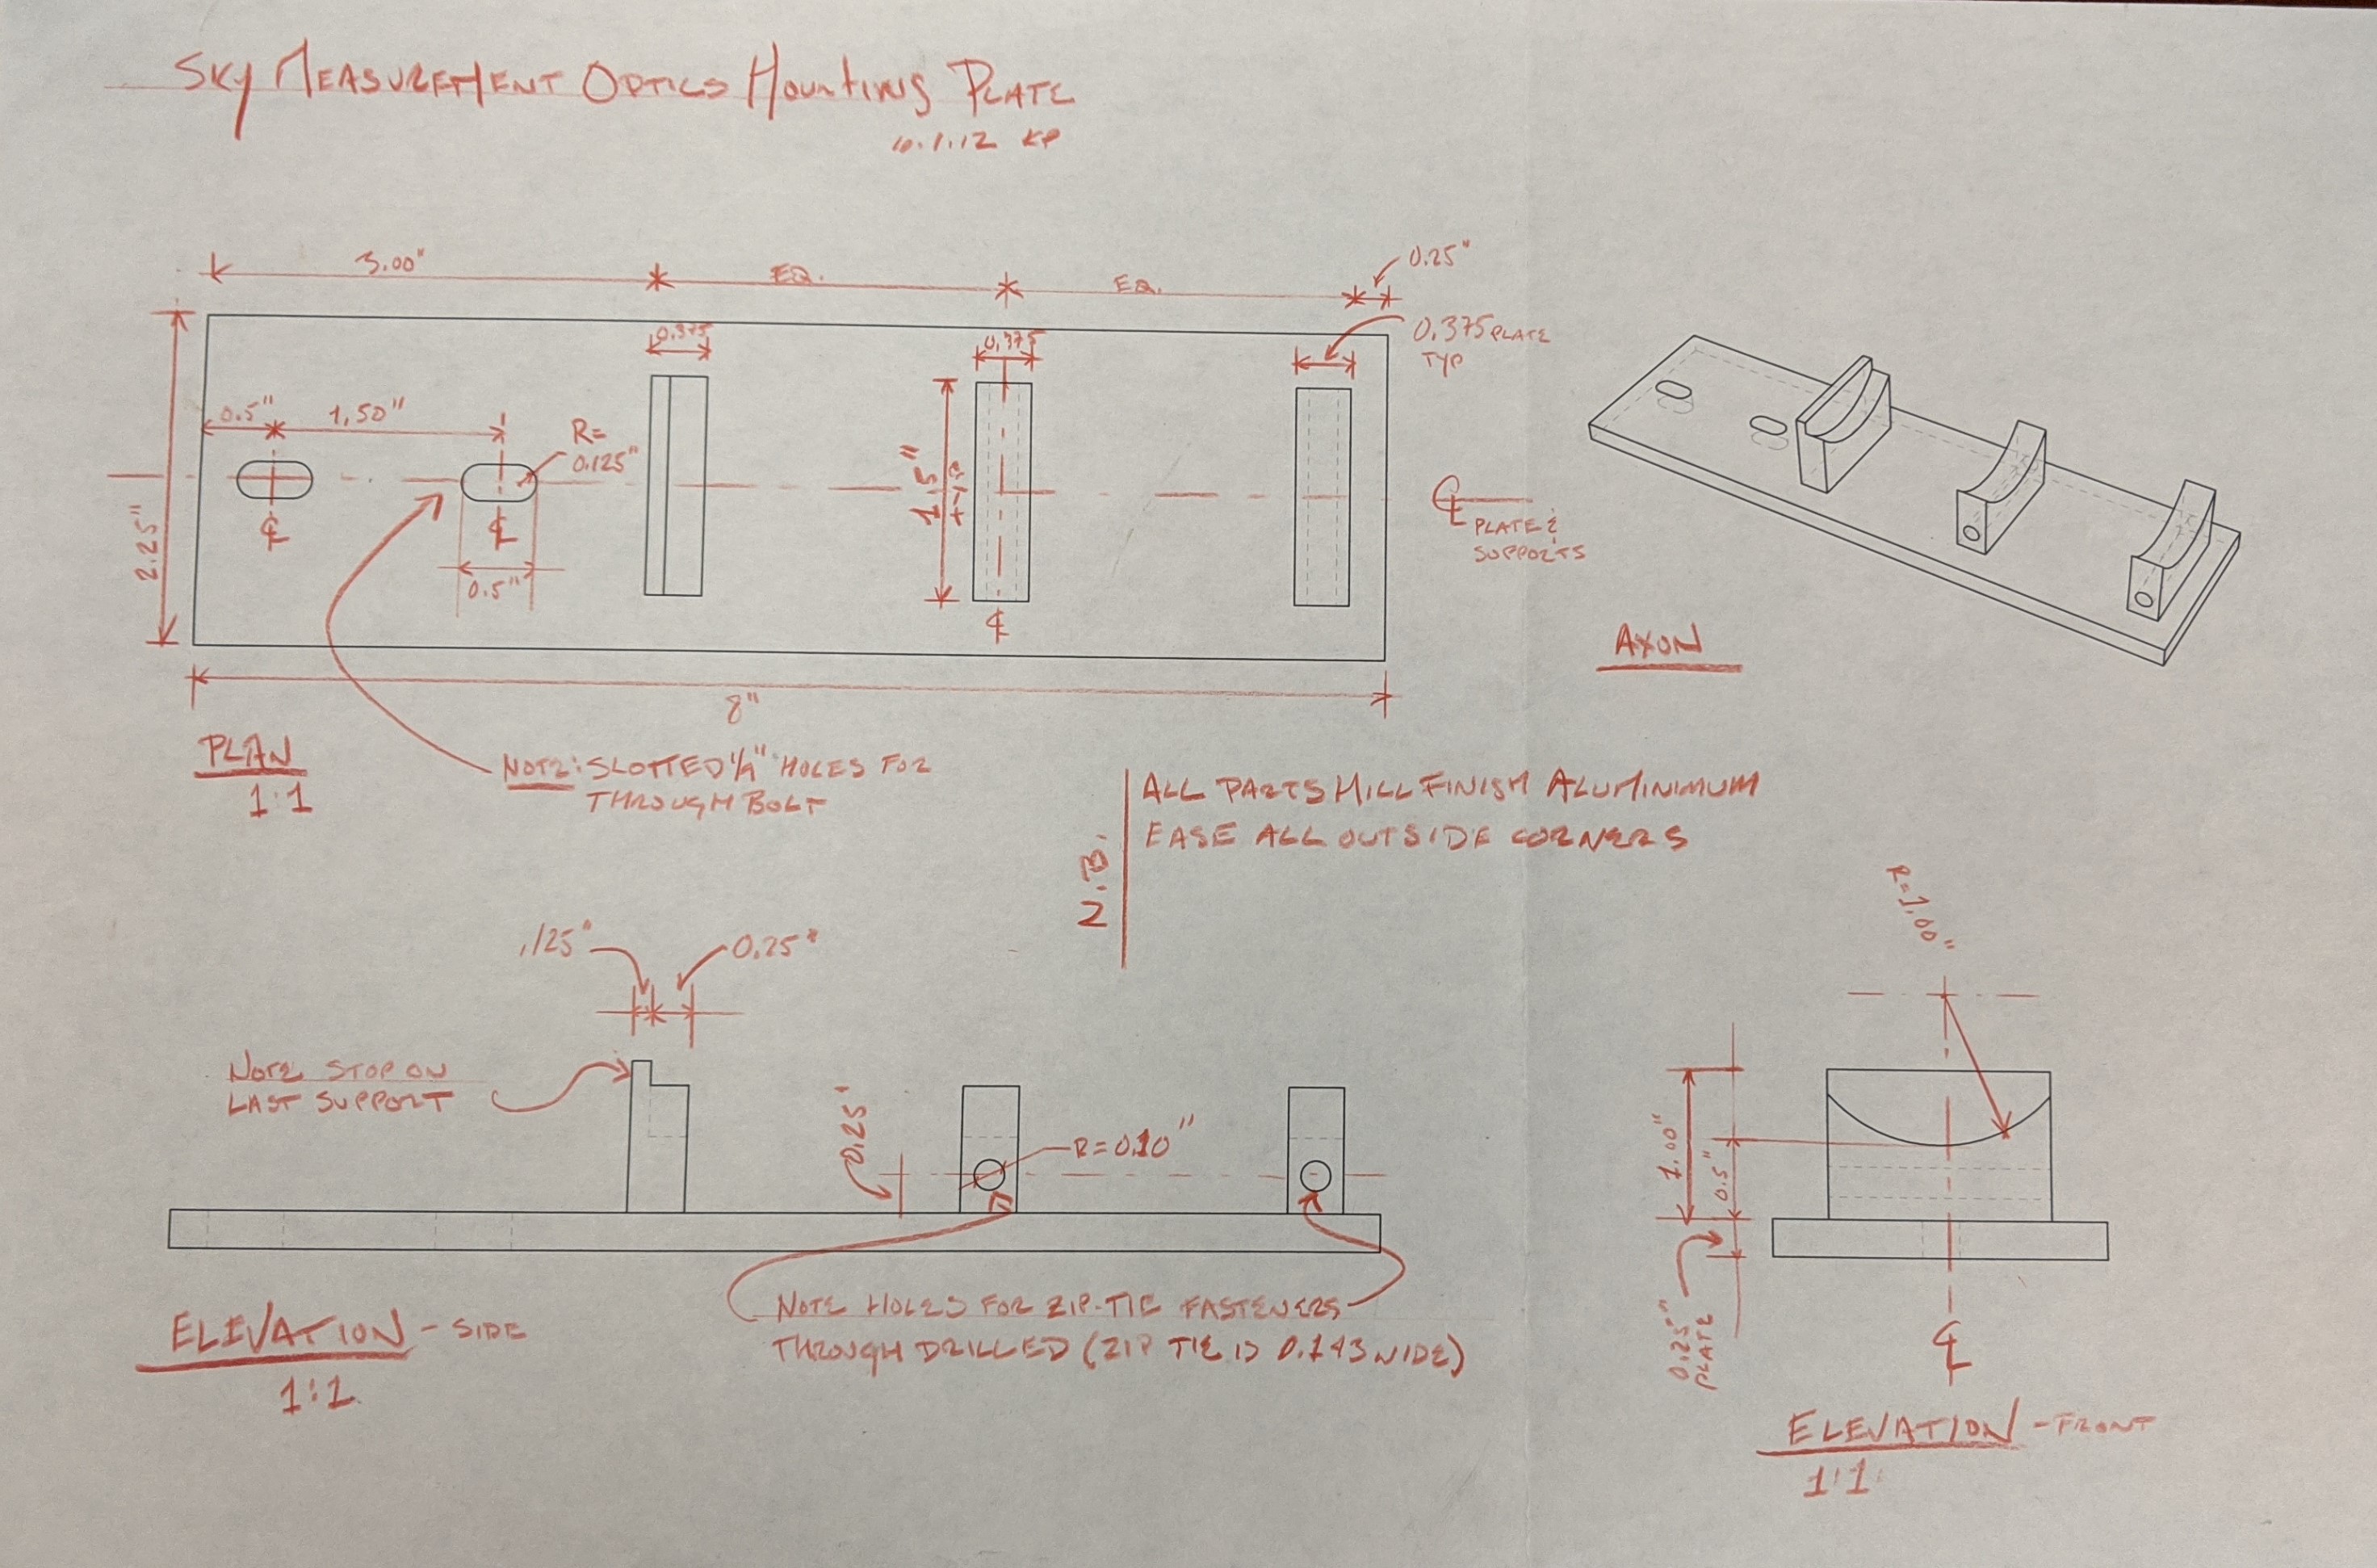 SKY MEASUREMENT OPTICS MOUNTING PLATE
10.1.12 KP
3.00"
EQ.
EQ.
0.25"
0.375
0.375
0.375 PLATE
TYP
0.5"
1.50"
R=
0.125"
2.25"
1.5"
TYP
℄
℄
0.5"
℄
℄ PLATE &
SUPPORTS
8"
AXON
PLAN
1:1
NOTE: SLOTTED 1/4" HOLES FOR
THROUGH BOLT
N.B.
ALL PARTS MILL FINISH ALUMINIMUM
EASE ALL OUTSIDE CORNERS
.125"
0.25"
NOTE STOP ON
LAST SUPPORT
0.25'
R=0.10"
NOTE HOLES FOR ZIP-TIE FASTENERS
THROUGH DRILLED (ZIP TIE IS 0.143 WIDE)
ELEVATION - SIDE
1:1
R=1.00"
1.00"
0.5"
0.25"
PLATE
℄
ELEVATION - FRONT
1:1